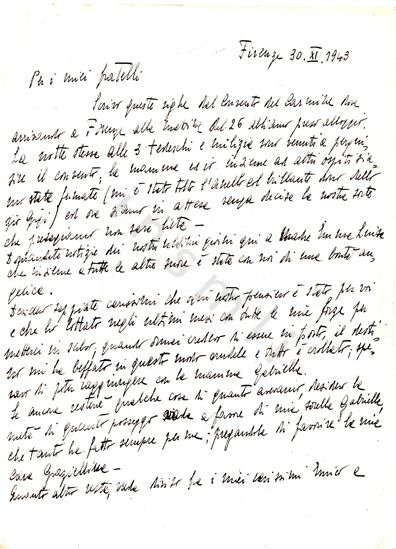 Firenze 30. XI. 1943
Per i miei fratelli
Scrivo queste righe dal Convento del Carmine dove
arrivando a Firenze alla mattina del 26 abbiamo preso alloggio.
La notte stessa alle 3 tedeschi e milizia sono venuti a perqui-
sire il convento; la mamma ed io insieme ad altri ospiti sia-
mo state fermate (mi è stato tolto l'anello col brillante dono dello
zio Gigi) ed ora siamo in attesa venga decisa la nostra sorte
che prevediamo non sarà lieta –
Domandate notizie dei nostri ultimi giorni qui a Madre Emma Luisa
che insieme a tutte le altre suore è stata con noi di una bontà an-
gelica.
Desidero sappiate carissimi che ogni nostro pensiero è stato per voi
e che ho lottato negli ultimi mesi con tutte le mie forze per
metterci in salvo; quando ormai credevo di essere in porto, il desti-
no mi ha beffato in questo modo crudele e tutto è crollato; spe-
ravo di poter raggiungere con la mamma Gabriella.
Se ancora resterà qualche cosa di quanto avevamo, desidero la
metà di quanto posseggo vada a favore di mia sorella Gabriella,
che tanto ha fatto sempre per me; pregandola di favorire la mia
cara Graziellina –
Quanto altro resta, vada diviso fra i miei carissimi Enrico e